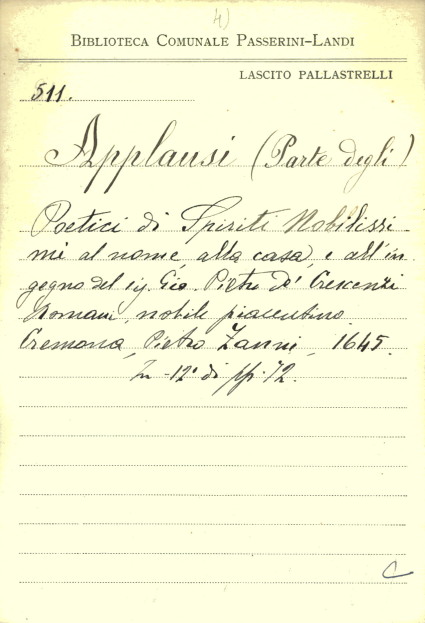 4)
BIBLIOTECA COMUNALE PASSERINI-LANDI
LASCITO PALLASTRELLI
511.
Applausi (Parte degli)
Poetici di Spiriti Nobilissi
mi al nome, alla casa e all'in
gegno del Sig. Gio. Pietro de' Crescenzi
Romani, nobile piacentino.
Cremona, Pietro Zanni, 1645.
In-12° di pp. 72.
C